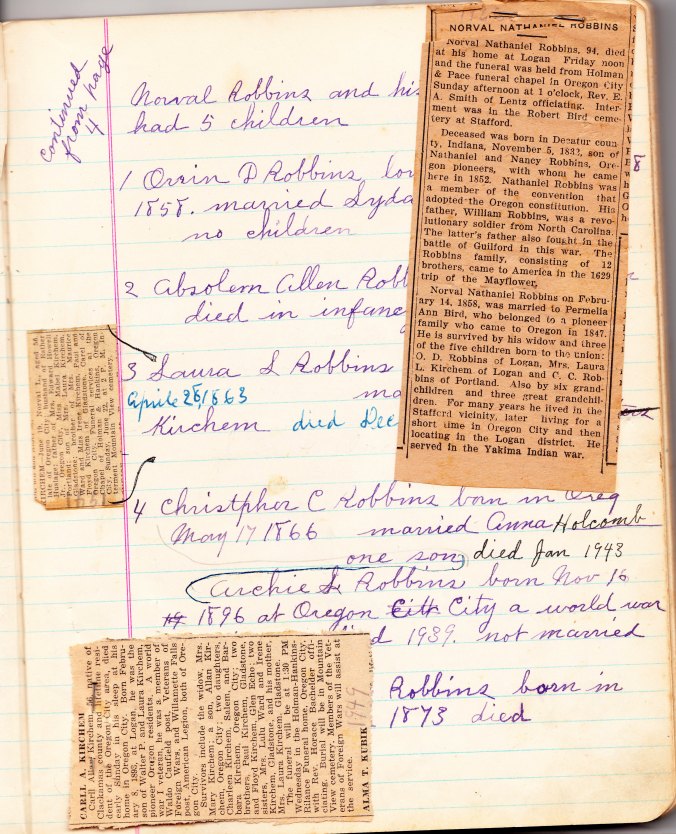 Continued
from page
4
Norval Robbins and his
had 5 children
1 Orrin D Robbins
1858. married Lyda
no children
2 Absolem Allen Robb
died in infancy
3 Laura L Robbins
Aprile 28, 1863
ma
Kirchem died Dec
4 Christpher C Robbins born in Oreg
May 17 1866 married Anna Holcomb
one son died Jan 1943
Archie S. Robbins born Nov 16
1896 at Oregon City a world war
d 1939. not married
Robbins born in
1873 died
NORVAL NATHANIEL ROBBINS
Norval Nathaniel Robbins, 94, died
at his home at Logan Friday noon
and the funeral was held from Holman
& Pace funeral chapel in Oregon City
Sunday afternoon at 1 o'clock, Rev. E.
A. Smith of Lentz officiating. Inter-
ment was in the Robert Bird ceme-
tery at Stafford.
Deceased was born in Decatur coun-
ty, Indiana, November 5, 1832, son of
Nathaniel and Nancy Robbins, Ore-
gon pioneers, with whom he came
here in 1852. Nathaniel Robbins was
a member of the convention that
adopted the Oregon constitution. His
father, William Robbins, was a revo-
lutionary soldier from North Carolina.
The latter's father also fought in the
battle of Guilford in this war. The
Robbins family, consisting of 12
brothers, came to America in the 1629
trip of the Mayflower.
Norval Nathaniel Robbins on Febru-
ary 14, 1858, was married to Permelia
Ann Bird, who belonged to a pioneer
family who came to Oregon in 1847.
He is survived by his widow and three
of the five children born to the union:
O. D. Robbins of Logan, Mrs. Laura
L. Kirchem of Logan and C. C. Rob-
bins of Portland. Also by six grand-
children and three great grandchil-
dren. For many years he lived in the
Stafford vicinity, later living for a
short time in Oregon City and then
locating in the Logan district. He
served in the Yakima Indian war.
KIRCHEM—June 19, Norval L., aged 56
late of Oregon City.
terment Mountain View cemetery.
CARL A. KIRCHEM
Carl Allen Kirchem, native of
Clackamas county and resi-
dent of the Oregon City area, died
early Sunday in his sleep at his
home in Oregon City. Born Febru-
ary 8, 1893, at Logan, he was the
son of Walter P. and Laura Kirchem,
pioneer Oregon residents. A world
war I veteran, he was a member of
Waldo Caufield post, Veterans of
Foreign Wars, and Willamette Falls
post, American Legion, both of Ore-
gon City.
Survivors include the widow, Mrs.
Mary Kirchem; a son, Allan Kir-
chem, Oregon City; two daughters,
Charleen Kirchem, Salem, and Bar-
bara Kirchem, Oregon City; two
brothers, Paul Kirchem, Gladstone,
and Floyd Kirchem, Echo; two
sisters, Mrs. Lulu Ward and Irene
Kirchem, Gladstone, and his mother,
Mrs. Laura Kirchem, Gladstone.
The funeral will be at 1:30 PM
Wednesday in the Holman-Hankins-
Rilance Funeral home, Oregon City,
with Rev. Horace Bacheldor offi-
ciating. Burial will be in Mountain
View cemetery. Members of the Vet-
erans of Foreign Wars will assist at
the service.
1949
ALMA T. KUBIK